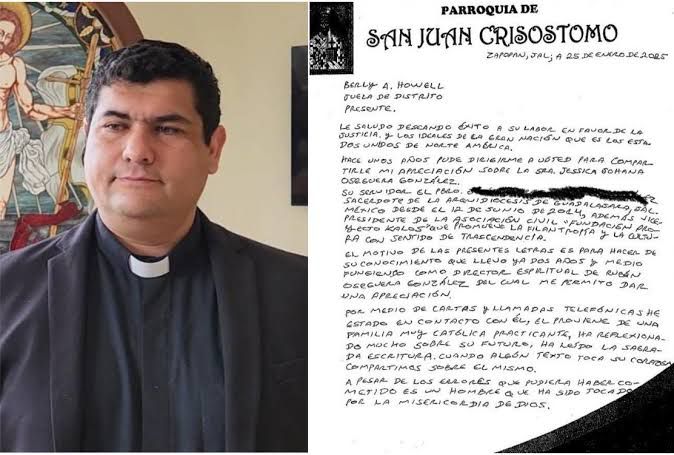 PARROQUIA DE
SAN JUAN CRISOSTOMO
ZAPOPAN, JAL; A 25 DE ENERO DE 2025
BERLY A. HOWELL
JUEZA DE DISTRITO
PRESENTE.
LE SALUDO DESEANDO ÉXITO A SU LABOR EN FAVOR DE LA
JUSTICIA. Y LOS IDEALES DE LA GRAN NACIÓN QUE ES LOS ESTA
DOS UNIDOS DE NORTE AMÉRICA.
HACE UNOS AÑOS PUDE DIRIGIRME A USTED PARA COMPAR
TIRLE MI APRECIACIÓN SOBRE LA SRA. JESSICA JOHANA
OSEGUERA GONZÁLEZ.
SU SERVIDOR EL PBRO.
SACERDOTE DE LA ARQUIDIOCESIS DE GUADALAJARA, JAL.
MÉXICO DESDE EL 12 DE JUNIO DE 2014, ADEMÁS VICE
PRESIDENTE DE LA ASOCIACIÓN CIVIL "FUNDACIÓN PRO
YECTO KALOS" QUE PROMUEVE LA FILANTROPÍA Y LA CULTU
RA CON SENTIDO DE TRASCENDENCIA.
EL MOTIVO DE LAS PRESENTES LETRAS ES PARA HACER DE
SU CONOCIMIENTO QUE LLEVO YA DOS AÑOS Y MEDIO
FUNGIENDO COMO DIRECTOR ESPIRITUAL DE RUBÉN
OSEGUERA GONZÁLEZ DEL CUAL ME PERMITO DAR
UNA APRECIACIÓN.
POR MEDIO DE CARTAS Y LLAMADAS TELEFÓNICAS HE
ESTADO EN CONTACTO CON ÉL, EL PROVIENE DE UNA
FAMILIA MUY CATÓLICA PRACTICANTE, HA REFLEXIONA
DO MUCHO SOBRE SU FUTURO, HA LEÍDO LA SAGRA
DA ESCRITURA. CUANDO ALGÚN TEXTO TOCA SU CORAZÓN
COMPARTIMOS SOBRE EL MISMO.
A PESAR DE LOS ERRORES QUE PUDIERA HABER CO
METIDO ES UN HOMBRE QUE HA SIDO TOCADO
POR LA MISERICORDIA DE DIOS.